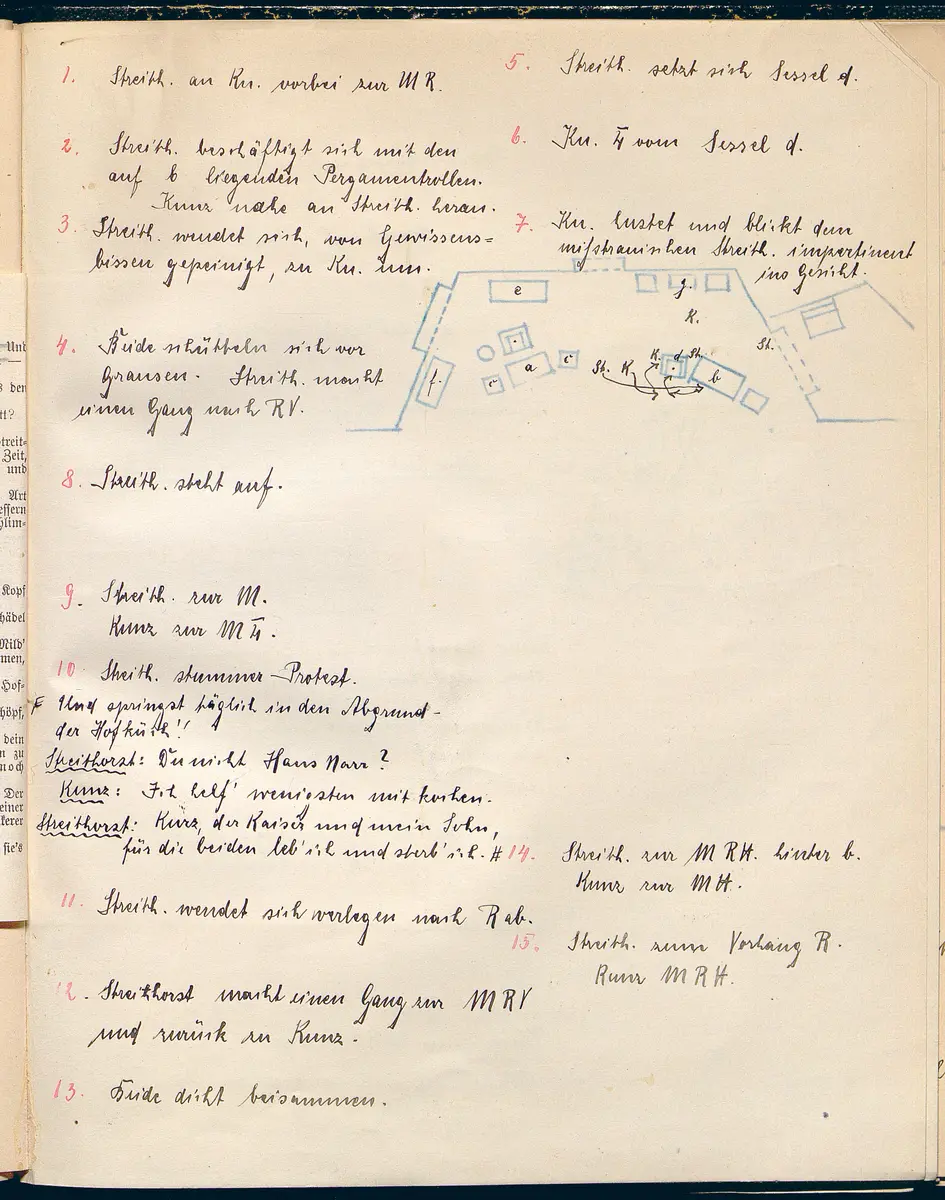 1. Streith. an Kn. vorbei zur M R.
2. Streith. beschäftigt sich mit den
auf b liegenden Pergamentrollen.
Kunz nahe an Streith. heran.
3. Streith. wendet sich, von Gewissens=
bissen gepeinigt, zu Kn. um.
4. Beide schütteln sich vor
Grausen. Streith. macht
einen Gang nach RV.
5. Streith. setzt sich Sessel d.
6. Kn. vom Sessel d.
7. Kn. hustet und blickt dem
misstrauischen Streith. impertinent
ins Gesicht.
e
g.
K.
f.
c
a
c
St. K.
K.
d
St.
b
St.
8. Streith. steht auf.
9. Streith. zur M.
Kunz zur M
10. Streith. stummer Protest.
Und springst täglich in den Abgrund –
der Hofküch!!
Streithorst: Du nicht Hans Narr?
Kunz: Ich helf' wenigsten mit kochen.
Streithorst: Kurz, der Kaiser und mein Sohn,
für die beiden leb' ich und sterb' ich. #
11. Streith. wendet sich verlegen nach R ab.
12. Streithorst macht einen Gang zur M R V
und zurück zu Kunz.
13. Beide dicht beisammen.
14. Streith. zur M R H. hinter b.
Kunz zur M H.
15. Streith. zum Vorhang R.
Kunz M R H.
Und
den
tt?
treit=
Zeit,
und
Art
essern
hlim=
Kopf
hädel
Mild'
men,
Hof=
höpf,
dein
n zu
noch
Der
einer
kerer
sie's